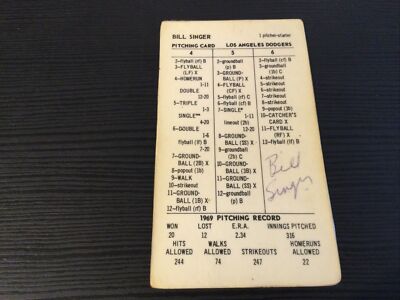 BILL SINGER 1 pitcher-starter
PITCHING CARD LOS ANGELES DODGERS
4 5 6
2-flyball (rf) B
3-FLYBALL
(LF) X
4-HOMERUN
1-11
DOUBLE
12-20
5-TRIPLE
1-3
SINGLE**
4-20
6-DOUBLE
1-6
flyball (rf) B
7-GROUND-
BALL (2B) X
8-popout (1b)
9-WALK
10-strikeout
11-GROUND-
BALL (1B) X
12-flyball (rf) B
2-groundball
(p) B
3-GROUND-
BALL (P) X
4-FLYBALL
(CF) X
5-strikeout
6-strikeout
7-SINGLE*
1-11
lineout (2b)
12-20
8-GROUND-
BALL (SS) X
9-groundball
(2b) C
10-GROUND-
BALL (1B) X
11-GROUND-
BALL (SS) X
12-groundball
(p) B
2-flyball (cf) B
3-groundball
(1b) C
4-strikeout
5-strikeout
6-strikeout
7-strikeout
8-strikeout
9-strikeout
10-CATCHER'S
CARD X
11-FLYBALL
(RF) X
12-flyball (lf) B
Bill
Singer
1969 PITCHING RECORD
WON LOST E.R.A. INNINGS PITCHED
20 12 2.34 316
HITS WALKS HOMERUNS
ALLOWED ALLOWED STRIKEOUTS ALLOWED
244 74 247 22